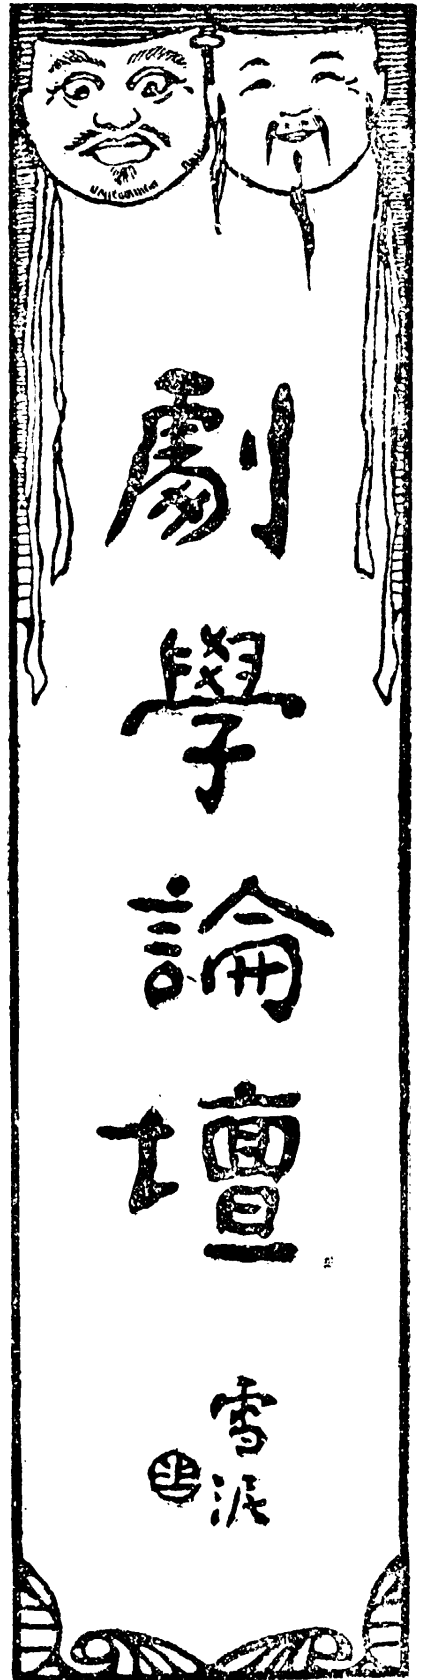 劇學論壇
雪泥